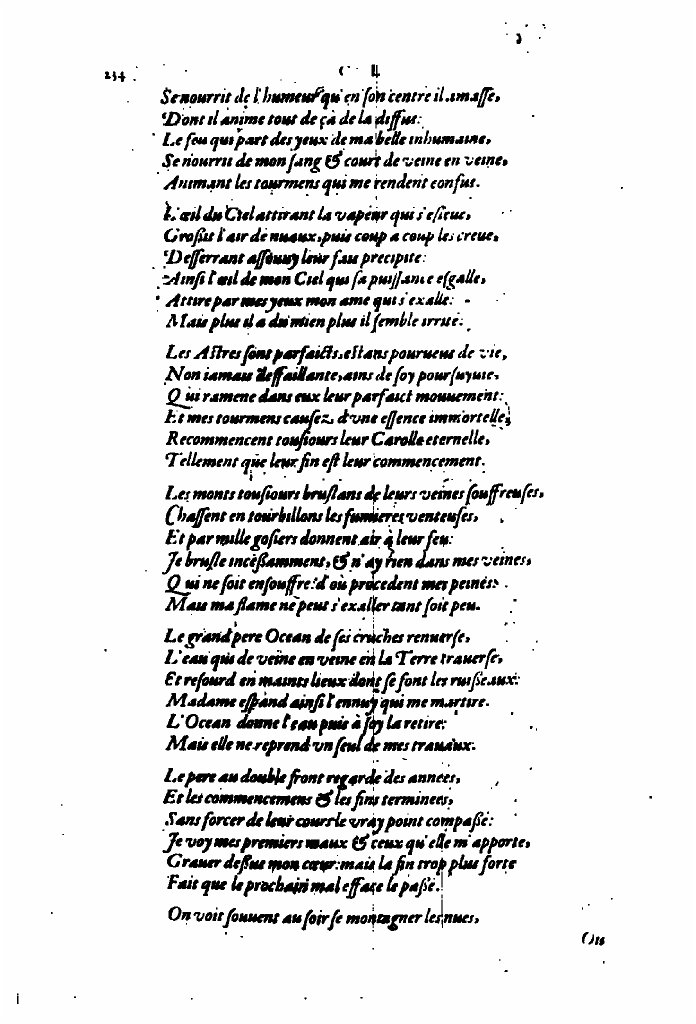 234
Se nourrit de l'humeur qu'en son centre il amasse,
Dont il anime tout de çà de la diffus:
Le feu qui part des yeux de ma belle inhumaine,
Se nourrit de mon sang & court de veine en veine,
Animant les tourmens qui me rendent confus.
L'œil du Ciel attirant la vapeur qui s'esleue,
Grossit l'air de nuaux, puis coup a coup les creue,
Desserrant assouuy leur fau precipite:
Ainsi l'œil de mon Ciel qui sa puissance esgalle,
Attire par mes yeux mon ame qui s'exalle:
Mais plus il a du mien plus il semble irrité.
Les Astres sont parfaicts, estans pourueus de vie,
Non iamais deffaillante, ains de soy poursuyuie,
Qui ramene dans eux leur parfaict mouuement:
Et mes tourmens causez d'vne essence immortelle,
Recommencent tousiours leur Carolle eternelle,
Tellement que leur fin est leur commencement.
Les monts tousiours bruslans de leurs veines souffreuses,
Chassent en tourbillons les fumieres venteuses,
Et par mille gosiers donnent air à leur feu:
Je brusle incessamment, & n'ay rien dans mes veines,
Qui ne soit ensouffre: d'où procedent mes peines:
Mais ma flame ne peut s'exaller tant soit peu.
Le grand pere Ocean de ses cruches renuerse,
L'eau qui de veine en veine en la Terre trauerse,
Et resourd en maints lieux dont se font les ruisseaux:
Madame espand ainsi l'ennuy qui me martire.
L'Ocean donne l'eau puis à soy la retire:
Mais elle ne reprend vn seul de mes trauaux.
Le pere au double front regarde des annees,
Et les commencemens & les fins terminees,
Sans forcer de leur cours le vray point compassé:
Je voy mes premiers maux & ceux qu'elle m'apporte,
Grauer dessus mon cœur: mais la fin trop plus forte
Fait que le prochain mal efface le passé.
On voit souuent au soir se montagner les nues,
On